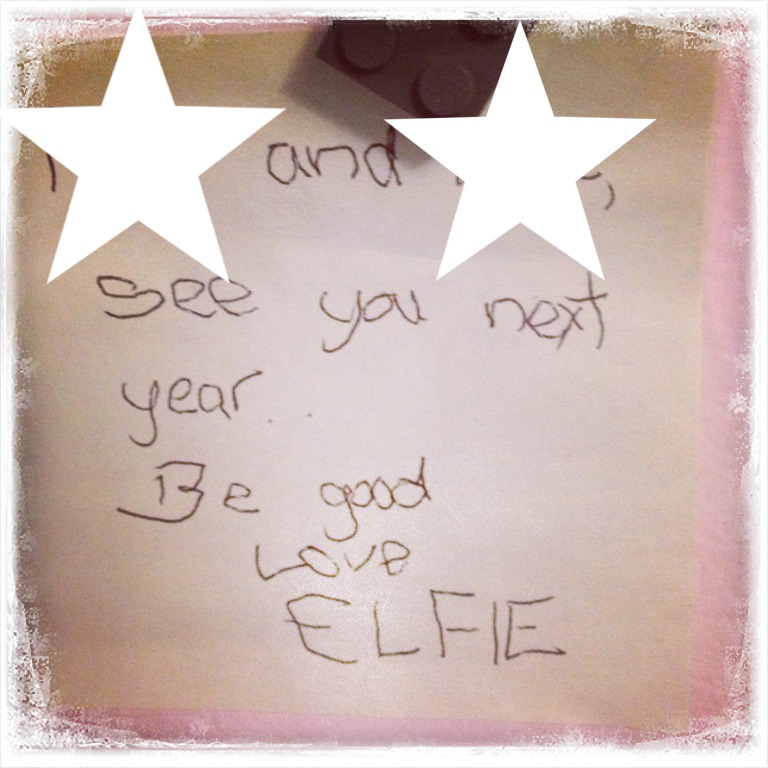 and
see you next
year..
Be good
Love
ELFIE